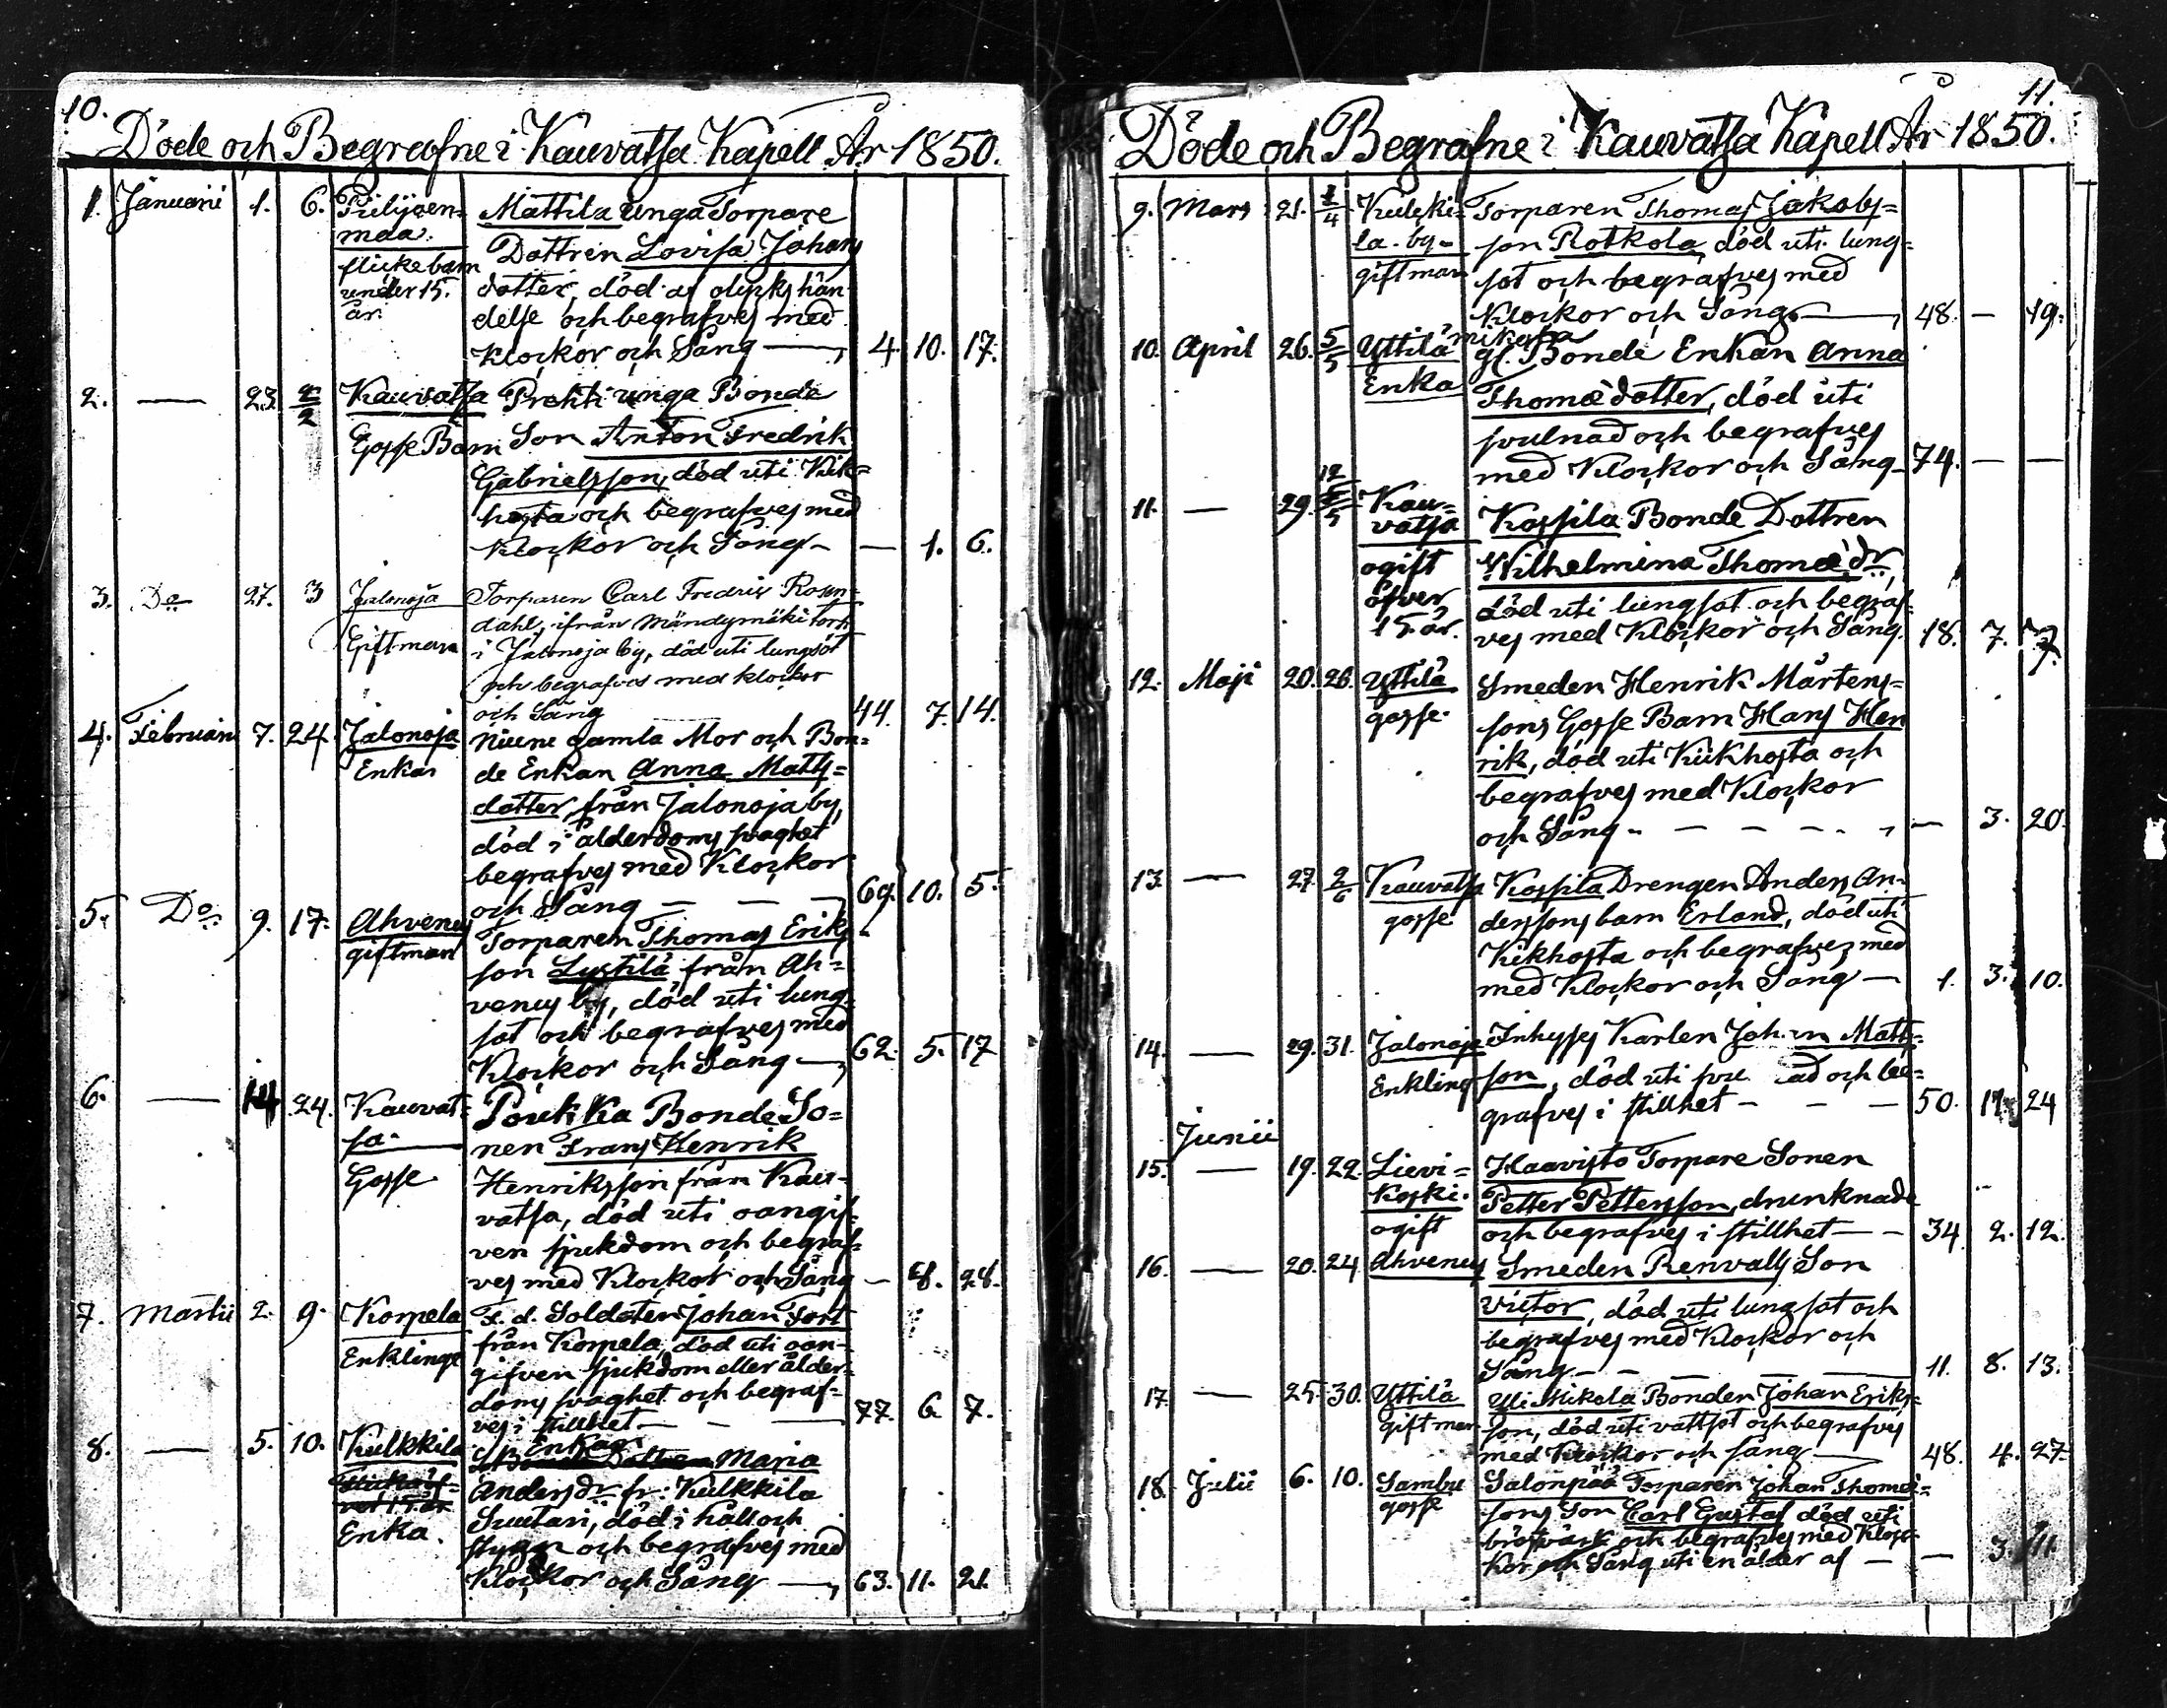 10.
Döde och Begrafne i Kauvatsa Kapell År 1850.
1. Januarii 1. 6. Piilijoen-
maa.
flickebarn
under 15.
år.
Mattila unga Torpare
Dottren Lovisa Johans
dotter, död af olyckshän
delse och begrafves med
Klockor och Sång — 4. 10. 17.
2. — 23. 2/2 Kauvatsa
Gosse Barn
Prehti unga Bonde
Son Anton Fredrik
Gabrielsson, död uti Kik=
hosta och begrafves med
Klockor och Sång — — 1. 6.
3. Do 27. 3 Jalonoja
Giftman
Torparen Carl Fredrik Rosen-
dahl, ifrån Mändymäki torp
i Jalonoja by, död uti lungsot
och begrafves med klockor
och Sång 44. 7. 14.
4. Februarii 7. 24. Jalonoja
Enkan
Niune gamla Mor och Bon=
de Enkan Anna Matts=
dotter, från Jalonoja by,
död i ålderdoms svaghet
begrafves med Klockor
och Sång — — — 69. 10. 5.
5. Do 9. 17. Ahvenus
giftman
Torparen Thomas Eriks
son Lystilä från Ah=
venus by, död uti lung
sot och begrafves med
Klockor och Sång — 62. 5. 17
6. — 14 24. Kauvat-
sa.
Gosse
Poukka Bonde So=
nen Frans Henrik
Henriksson från Kau-
vatsa, död uti oangif=
ven sjukdom och begraf=
ves med Klockor och Sång — 8. 28.
7. Martii 2. 9. Korpela
Enklinge
F. d. Soldaten Johan Fort
från Korpela, död uti oan-
gifven sjukdom eller ålder-
doms svaghet och begraf=
ves i stillhet — — — 77. 6. 7.
8. — 5. 10. Kulkkila
Enka.
Enkan
Maria
Andersdr. fr. Kulkkila
Suutari, död i håll och
stygn och begrafves med
Klockor och Sång — 63. 11. 21.
11.
Döde och Begrafne i Kauvatsa Kapell År 1850.
9. Mars 21. 1/4 Kulcki=
la. by=
giftman
Torparen Thomas Jakobs=
son Rotkola, död uti lung=
sot och begrafves med
Klockor och Sång — 48. — 19.
10. April 26. 5/5 Yttilä
Enka
mikola
gl. Bonde Enkan Anna
Thomædotter, död uti
svulnad och begrafves
med Klockor och Sång — 74. — —
11. — 29. 12/5 Kau-
vatsa
ogift
öfver
15. år.
Kossila Bonde Dottren
Wilhelmina Thomædr,
död uti lungsot och begraf=
ves med Klockor och Sång. 18. 7. 7.
12. Maji 20. 26. Yttilä
gosse.
Smeden Henrik Mårtens=
sons Gosse Barn Hans Hen
rik, död uti Kikhosta och
begrafves med Klockor
och Sång — — — — — 3. 20.
13. — 27. 2/6 Kauvatsa
gosse
Kossila Drengen Anders An-
derssons barn Erland, död uti
Kikhosta och begrafves med
med Klockor och Sång — 1. 3. 10.
14. — 29. 31. Jalonoja
Enkling
Inhyses Karlen Johan Matts=
son, död uti och be=
grafves i stillhet — — — 50. 11. 24
Junii
15. — 19. 22. Lievi=
koski.
ogift
Haavisto Torpare Sonen
Petter Pettersson, drunknade
och begrafves i stillhet — — 34. 2. 12.
16. — 20. 24 Ahvenus
Smeden Renvalls Son
Victor, död uti lungsot och
begrafves med Klockor och
Sång — — — — 11. 8. 13.
17. — 25. 30. Yttilä
gift man
Yli Mikola Bonden Johan Eriks-
son, död uti vattsot och begrafves
med Klockor och sång — 48. 4. 27.
18. Julii 6. 10. Sambu
gosse
Salonpää Torparen Johan Thomæ=
sons Son Carl Gustaf död uti
bröstvärk och begrafves med Kloc-
kor och Sång uti en ålder af — — 3. 11.